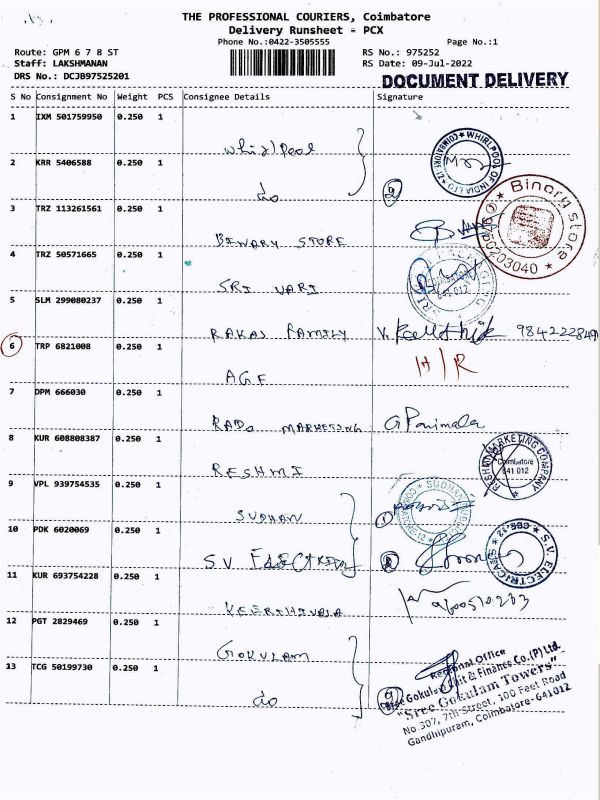 THE PROFESSIONAL COURIERS, Coimbatore
Delivery Runsheet - PCX
Phone No.:0422-3505555
Page No.:1
Route: GPM 6 7 8 ST
RS No.: 975252
Staff: LAKSHMANAN
RS Date: 09-Jul-2022
DRS No.: DCJB97525201
DOCUMENT DELIVERY
S No Consignment No Weight PCS Consignee Details Signature
1 IXM 501759950 0.250 1
Whirlpool
WHIRLPOOL OF INDIA LTD
2 KRR 5406588 0.250 1
do
3 TRZ 113261561 0.250 1
BINARY STORE
Binary Store
4 TRZ 50571665 0.250 1
SRI VARI
641 012
5 SLM 299080237 0.250 1
RAKAS FAMILY
6 TRP 6821008 0.250 1
AGE
H/R
7 DPM 666030 0.250 1
RADO MARKETING
8 KUR 608808387 0.250 1
RESHMI
MARKETING COMPANY
Coimbatore
641 012
9 VPL 939754535 0.250 1
SUDHAN
10 PDK 6020069 0.250 1
S.V. ELECTRICAL
S.V. ELECTRICALS
CBE-12
11 KUR 693754228 0.250 1
12 PGT 2829469 0.250 1
GOKULAM
13 TCG 50199730 0.250 1
do
Regional Office
Sree Gokulam Chit & Finance Co.(P) Ltd.
"Sree Gokulam Towers"
No.307, 7th Street, 100 Feet Road
Gandhipuram, Coimbatore-641012